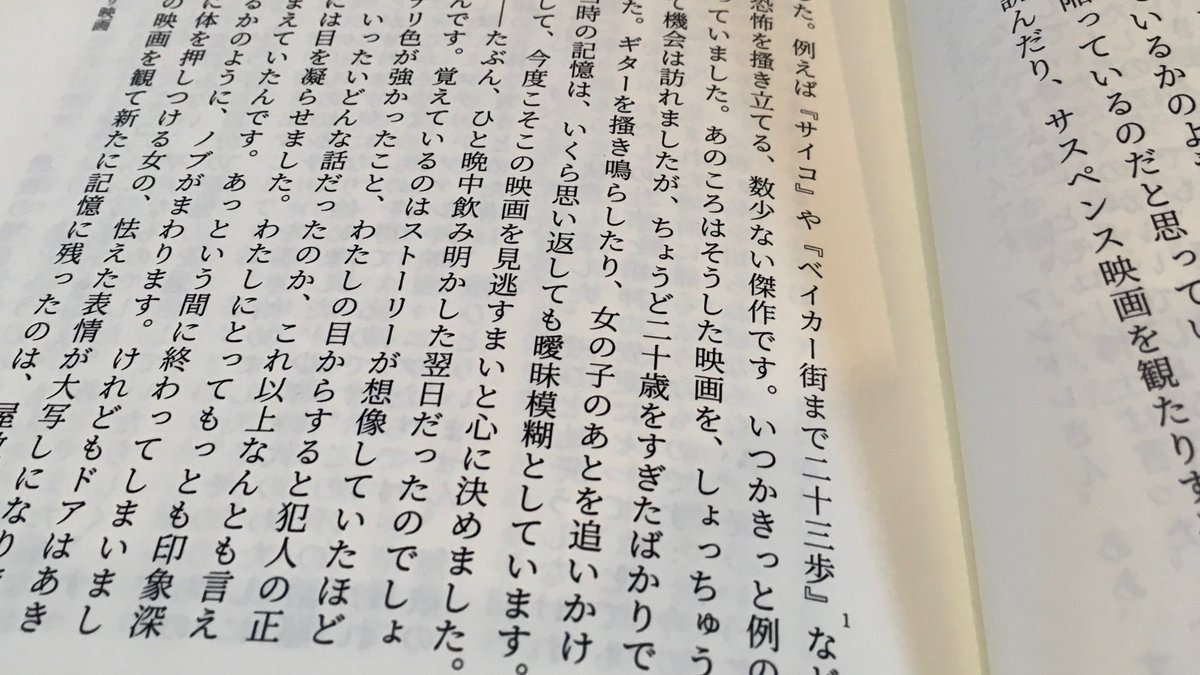 いるかのよ
陥っているのだと思って
読んだり、サスペンス映画を観たりす
た。例えば『サイコ』や『ベイカー街まで二十三歩』1など
恐怖を掻き立てる、数少ない傑作です。いつかきっと例の
っていました。あのころはそうした映画を、しょっちゅう
て機会は訪れましたが、ちょうど二十歳をすぎたばかりで
た。ギターを掻き鳴らしたり、女の子のあとを追いかけ
当時の記憶は、いくら思い返しても曖昧模糊としています。
して、今度こそこの映画を見逃すまいと心に決めました。
――たぶん、ひと晩中飲み明かした翌日だったのでしょ
んです。覚えているのはストーリーが想像していたほど
ブリ色が強かったこと、わたしの目からすると犯人の正
いったいどんな話だったのか、これ以上なんとも言え
には目を凝らせました。わたしにとってもっとも印象深
まえていたんです。あっという間に終わってしまいまし
るかのように、ノブがまわります。けれどもドアはあき
に体を押しつける女の、怯えた表情が大写しになり
の映画を観て新たに記憶に残ったのは、
ッ映画